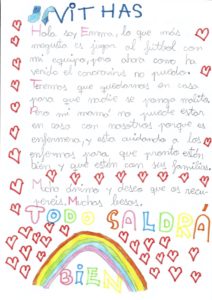 VITHAS
Hola soy Emma, lo que más
me gusta es jugar al futbol con
mi equipo, pero ahora como ha
venido el coronavirus no puedo.
Tenemos que quedarnos en casa
para que nadie se ponga malito.
Pero mi mamá no puede estar
en casa con nosotros porque es
enfermera, y esta cuidando a los
enfermos para que pronto estén
bien y que estén con sus familias.
Mucho ánimo y deseo que os recu-
pereis. Muchos besos.
TODO SALDRÁ
BIEN